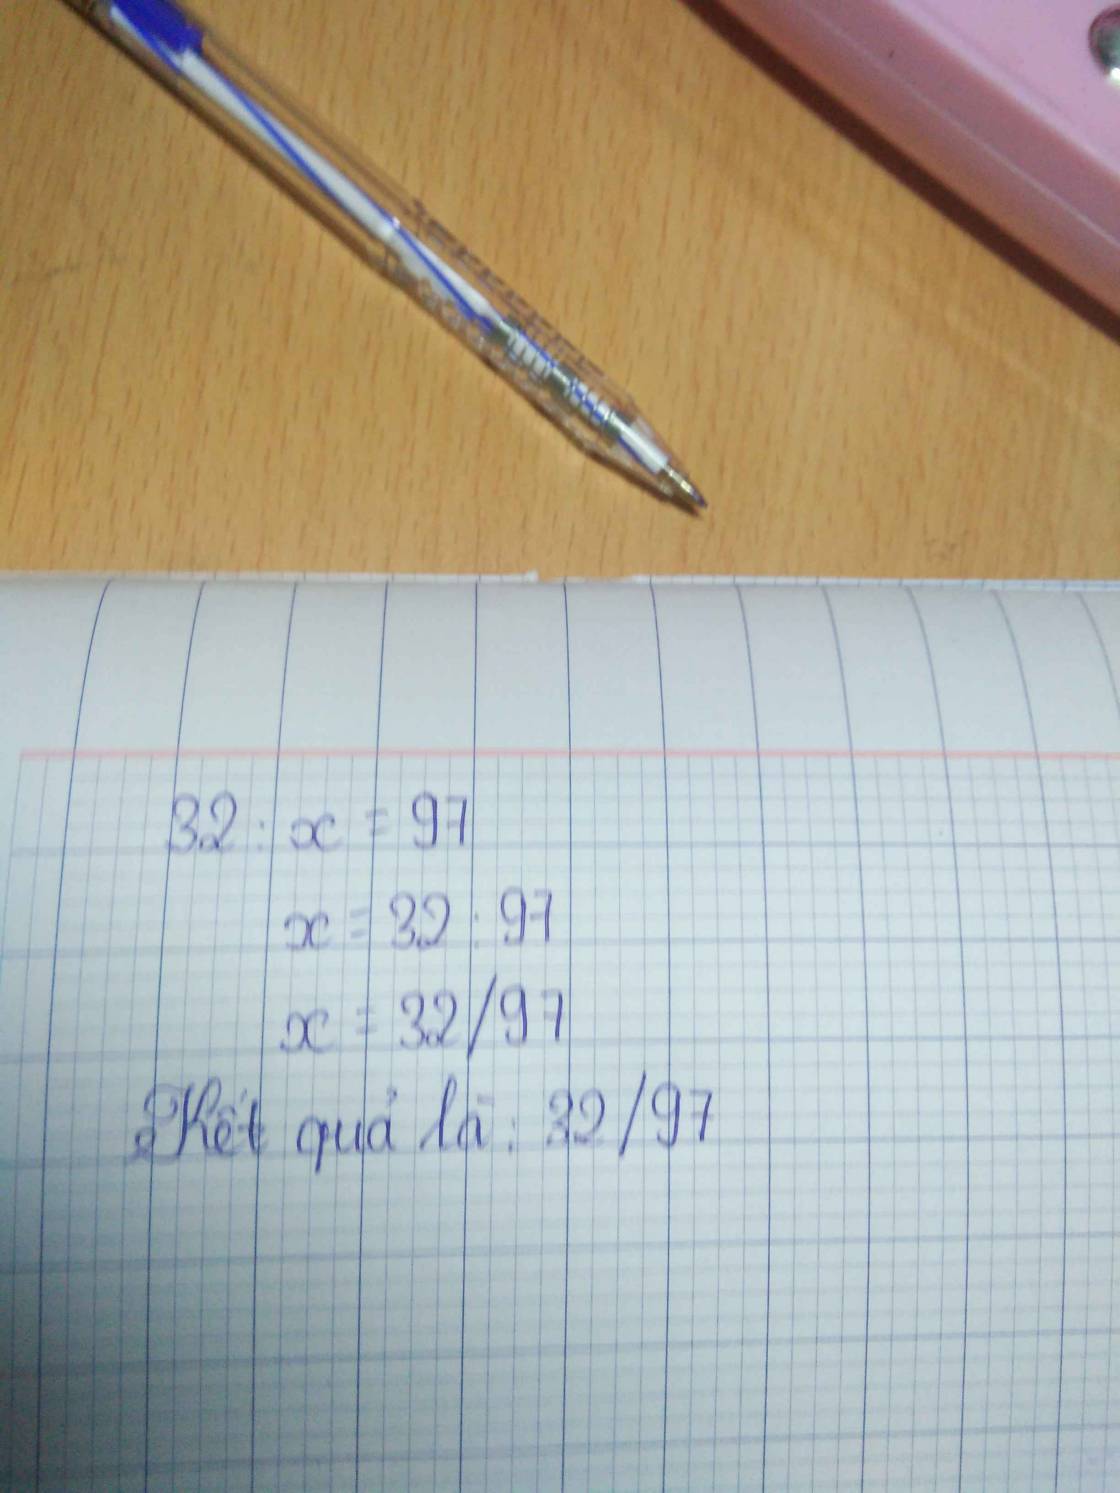 32 : x = 97
x = 32 : 97
x = 32/97
Kết quả là : 32/97